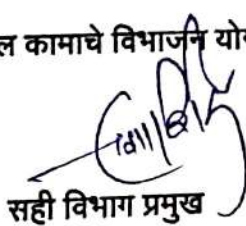 ल कामाचे विभाजन यो
सही विभाग प्रमुख